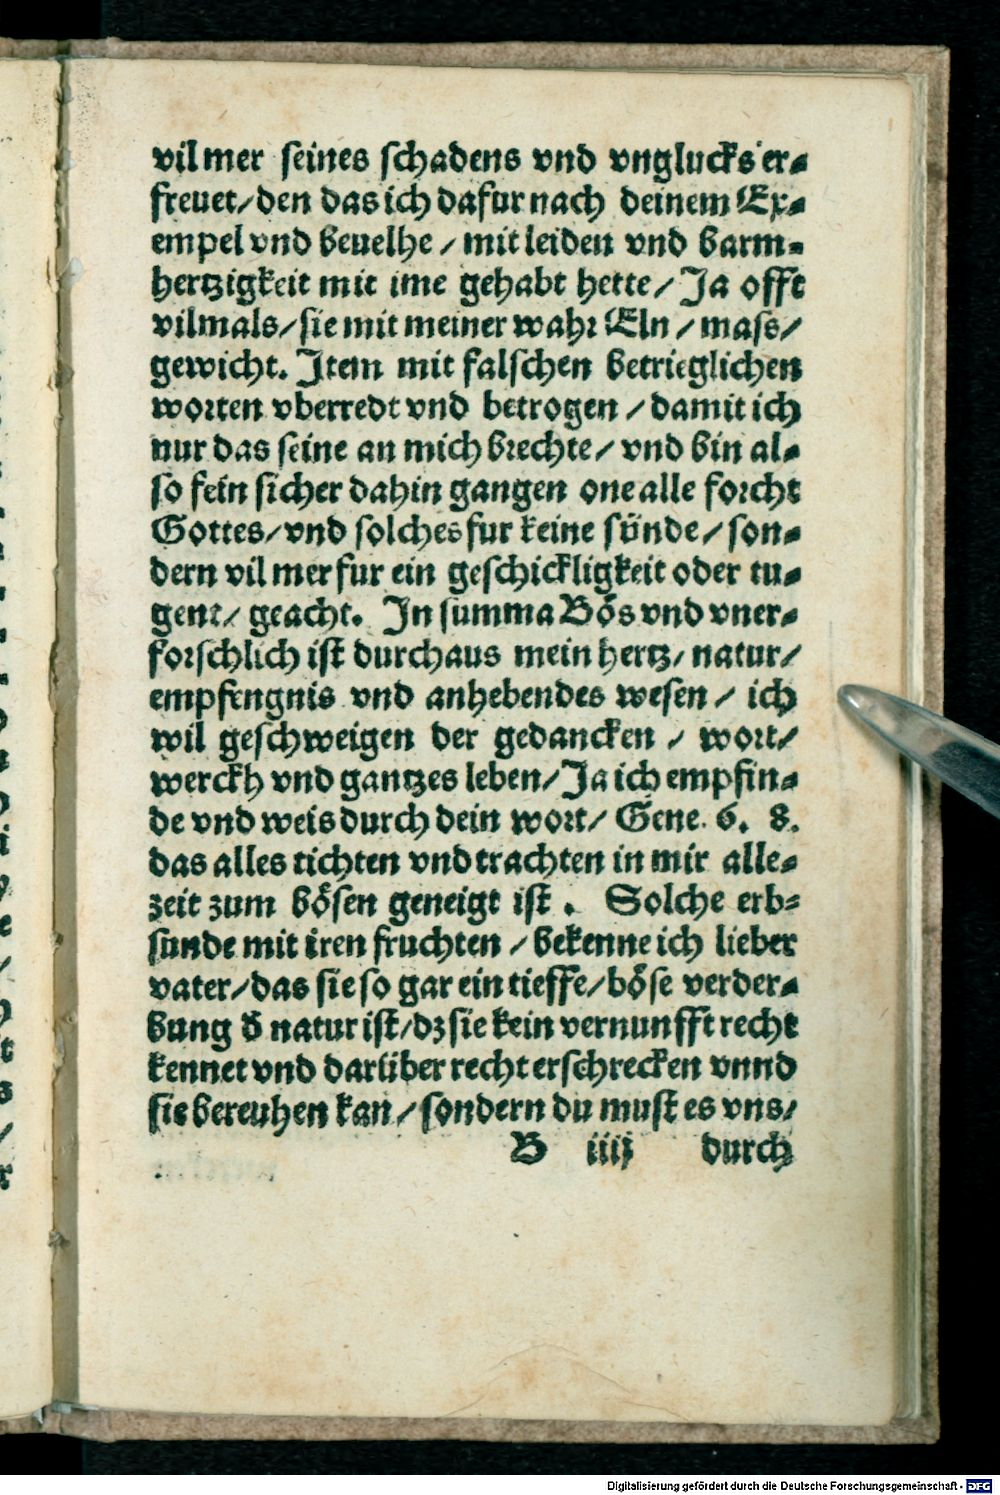 vil mer seines schadens vnd vnglucks er⸗
freuet/ den das ich dafur nach deinem Ex⸗
empel vnd beuelhe / mit leiden vnd barm⸗
hertzigkeit mit ime gehabt hette/ Ja offt
vilmals/ sie mit meiner wahr Eln / mass/
gewicht. Item mit falschen betrieglichen
worten vberredt vnd betrogen / damit ich
nur das seine an mich brechte/ vnd bin al⸗
so fein sicher dahin gangen one alle forcht
Gottes/ vnd solches fur keine sünde/ son⸗
dern vil mer fur ein geschickligkeit oder tu⸗
gent/ geacht. In summa Bös vnd vner⸗
forschlich ist durchaus mein hertz/ natur/
empfengnis vnd anhebendes wesen / ich
wil geschweigen der gedancken / wort/
werckh vnd gantzes leben/ Ja ich empfin⸗
de vnd weis durch dein wort/ Gene. 6. 8.
das alles tichten vnd trachten in mir alle⸗
zeit zum bösen geneigt ist. Solche erb⸗
sunde mit iren fruchten / bekenne ich lieber
vater/ das sie so gar ein tieffe/ böse verder⸗
bung d̕ natur ist/ dz sie kein vernunfft recht
kennet vnd darüber recht erschrecken vnnd
sie bereuhen kan/ sondern du must es vns/
B iiij durch
Digitalisierung gefördert durch die Deutsche Forschungsgemeinschaft - DFG